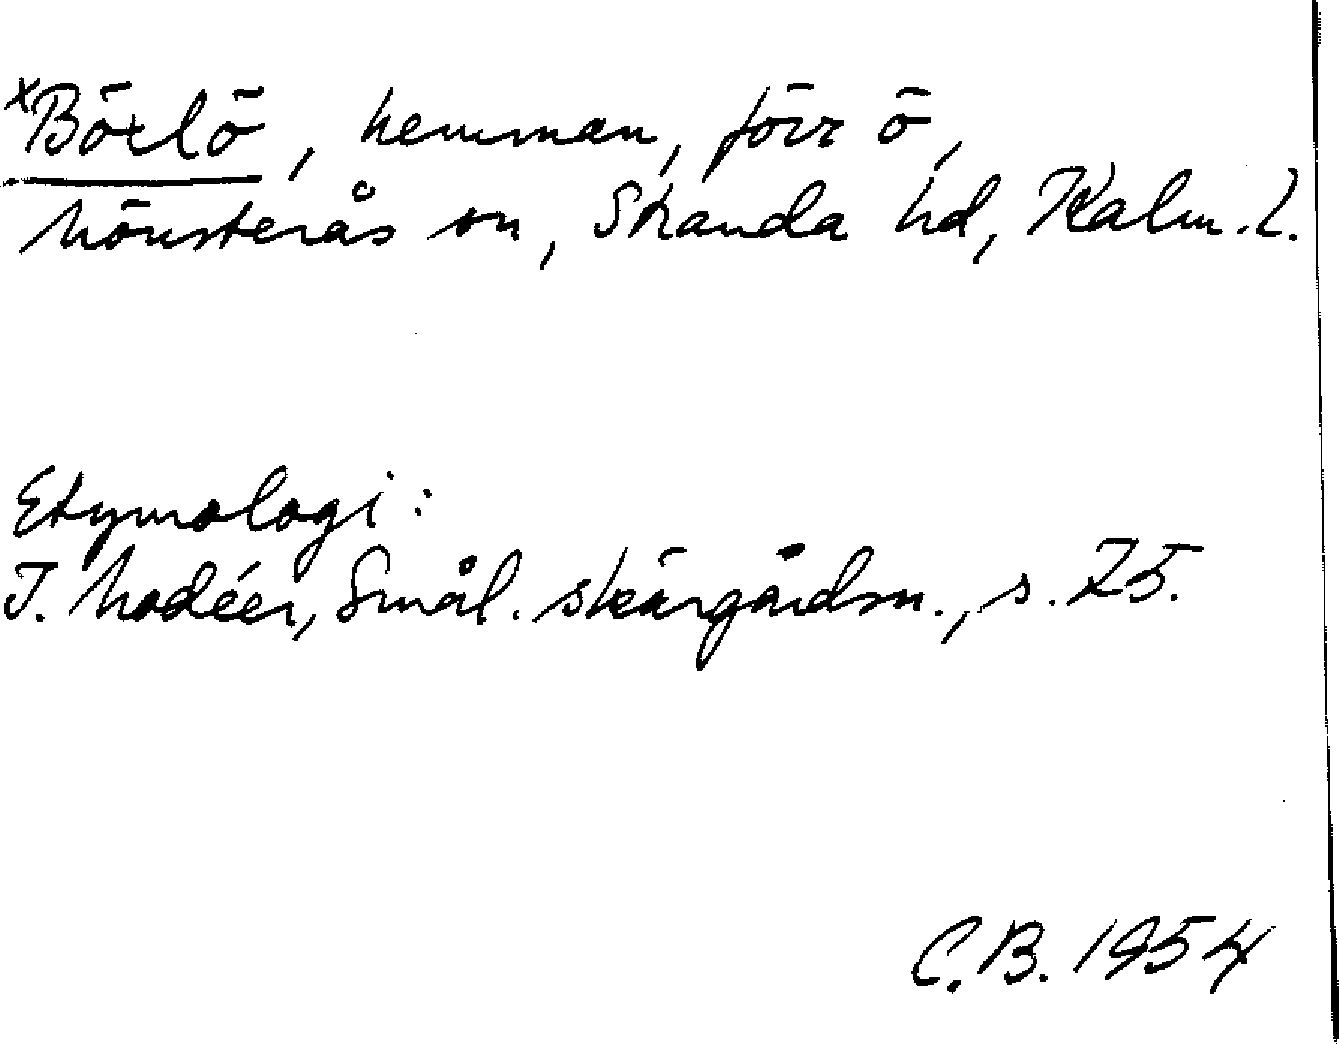 xBöxlö, hemman, förr ö,
Mönsterås sn, Stranda hd, Kalm. l.
Etymologi:
I. Modéer, Smål. skärgårdsn., s. 75.
C.B. 1954